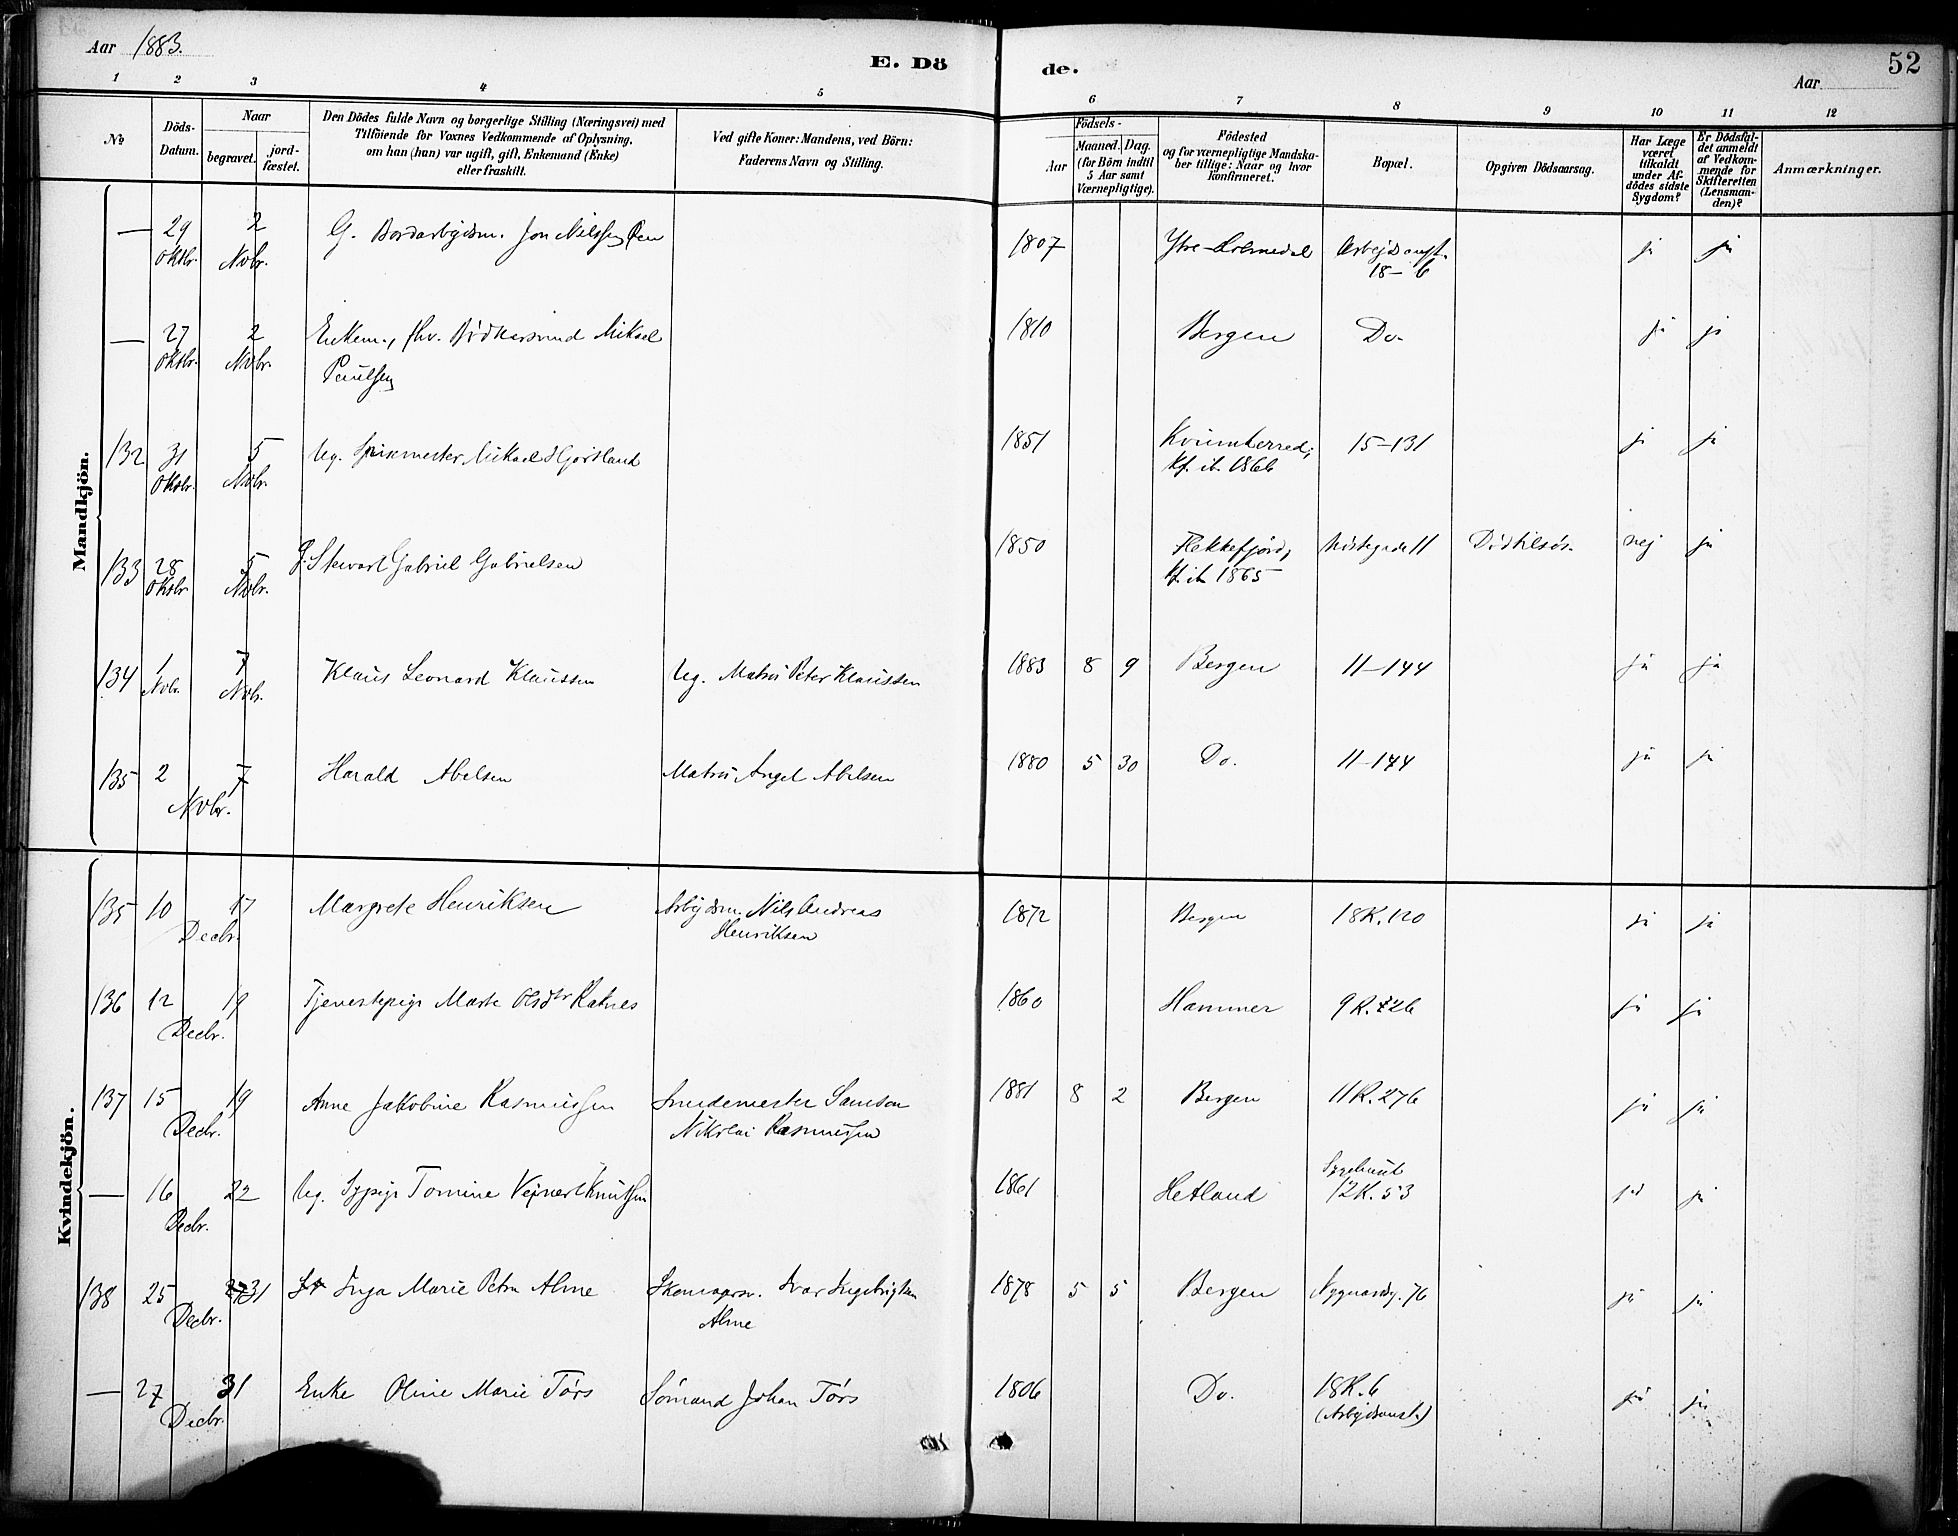 Aar 1883.
E. Dö
de.
Aar
52
1 2 3 4 5 6 7 8 9 10 11 12
No
Döds-Datum.
Naar
begravet.
jord-fæstet.
Den Dödes fulde Navn og borgerlige Stilling (Næringsvei) med
Tilföiende for Voxnes Vedkommende af Oplysning,
om han (hun) var ugift, gift, Enkemand (Enke)
eller fraskilt.
Ved gifte Koner: Mandens, ved Börn:
Faderens Navn og Stilling.
Födsels-
Aar
Maaned. Dag.
(for Börn indtil
5 Aar samt
Værnepligtige).
Födested
og for værnepligtige Mandska-
ber tillige: Naar og hvor
konfirmeret.
Bopæl.
Opgiven Dödsaarsag.
Har Læge
været
tilkaldt
under Af-
dödes sidste
Sygdom?
Er Dödsfal-
det anmeldt
af Vedkom-
mende for
Skifteretten
(Lensman-
den)?
Anmærkninger.
Mandkjön.
— 29 Oktbr. 2 Novbr. G. Jon Nilssen 1807 Ytre- Arbejdsanst. 18–6 ja ja
— 27 Oktbr. 2 Novbr. Enkem., fhv. Bødkersvend Mikael
Paulsen 1810 Bergen Do. ja ja
132 31 Oktbr. 5 Novbr. Ug. Mikael 1851 Kvinnherred;
kf. ib. 1866 15–131 ja ja
133 28 Oktbr. 5 Novbr. G. Stewart Gabriel Gabrielsen 1850 Flekkefjord,
kf. ib. 1865 11 nej ja
134 1 Novbr. 7 Novbr. Klaus Leonard Klaussen Ug. Matros Peter Klaussen 1883 8 9 Bergen 11–144 ja ja
135 2 7 Novbr. Harald Abelsen Matros Angel Abelsen 1880 5 30 Do. 11–144 ja ja
Kvindekjön.
135 10 17 Decbr. Margrete Henriksen Arbejdsm. Nils Andreas
Henriksen 1872 Bergen 18K.120 ja ja
136 12 19 Decbr. Tjenestepige Marte Olsdtr 1860 Hammer 9 R. 726 ja ja
137 15 19 Decbr. Anne Jakobine Rasmussen Smedemester Samson
Nikolai Rasmussen 1881 8 2 Bergen 11R.276 ja ja
— 16 22 Decbr. Ug. Sypige Tomine Knutsen 1861 Hetland Sygehuset
12R.53 ja ja
138 25 31 Decbr. Inga Marie Petra Alme Skomagersv. Ivar Ingebrigtsen
Alme 1878 5 5 Bergen Nygaardsg. 76 ja ja
— 27 31 Decbr. Enke Oline Marie Törs Sömand Johan Törs 1806 Do. 18R.6
(Arbejdsanst.) ja ja